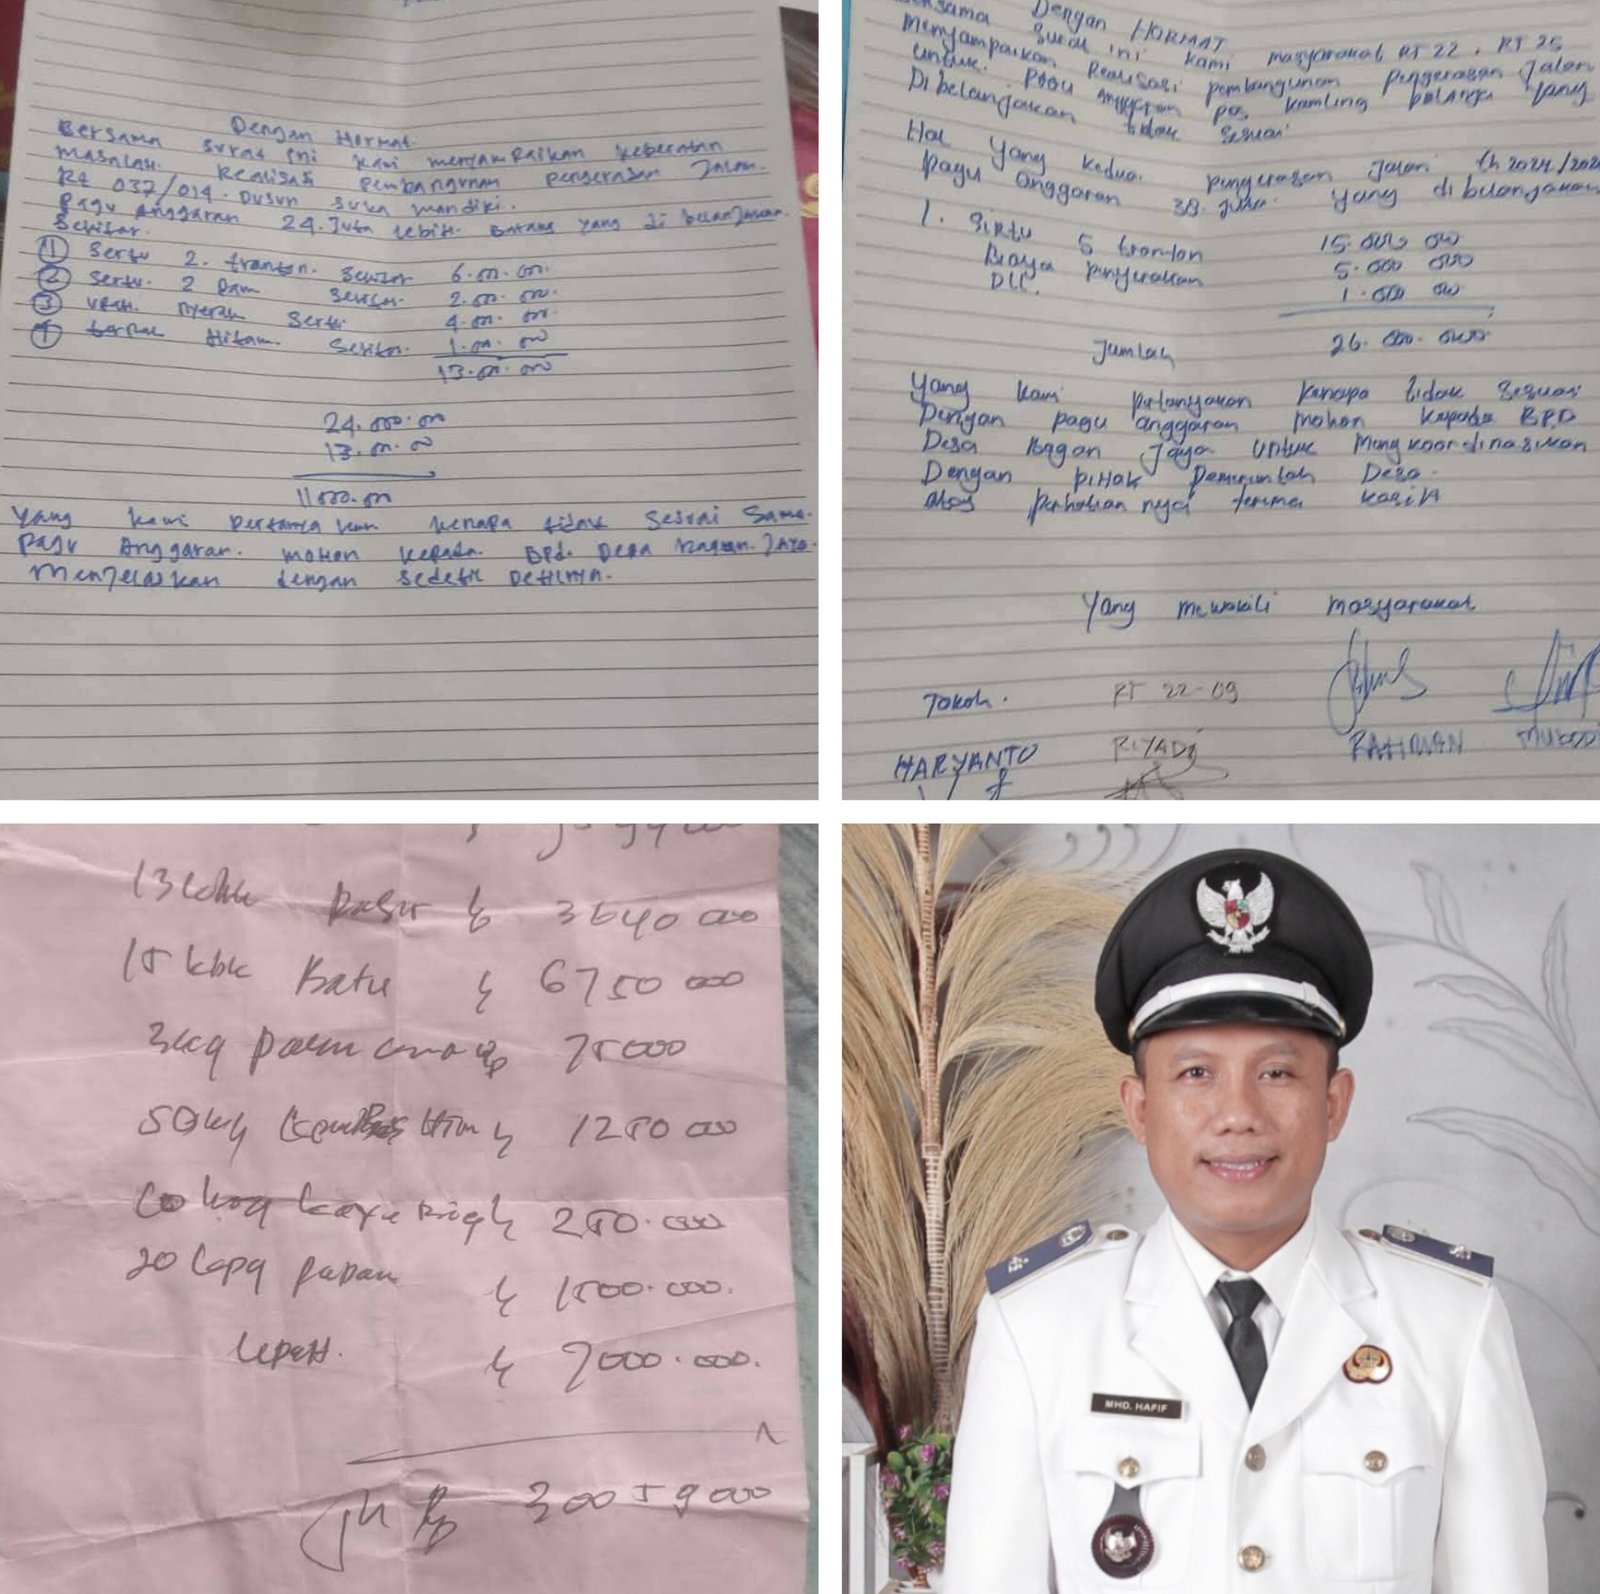 Dengan Hormat.
Bersama surat ini kami menyampaikan keberatan
masalah. Realisasi pembangunan pengerasan Jalan.
Rt 037/014. Dusun suka mandiri.
Pagu Anggaran 24. Juta lebih. Barang yang di belanjakan.
Sekitar.
1 Sertu 2. tronton. Sekitar 6.000.000.
2 Sertu. 2 Dam Sekitar. 2.000.000.
3 Upah. nyerak Sertu. 4.000.000.
4 Hitam. Sekitar. 1.000.000
13.000.000
24.000.000
13.000.000
11.000.000
Yang kami Pertanyakan kenapa tidak Sesuai Sama.
Pagu Anggaran. mohon kepada. BPd. Desa Bagan. Jaya.
Menjelaskan dengan sedetil Detilnya.
Dengan HORMAT
Bersama Surat ini kami masyarakat RT 22, RT 25
Menyampaikan Realisasi pembangunan pengerasan Jalan
untuk. Pagu Anggaran pos kamling belanja Yang
Dibelanjakan tidak sesuai
Hal Yang kedua. pengerasan Jalan th 2024/202
Pagu anggaran 38. Juta. Yang dibelanjakan
1. SIRTU 5 tronton 15.000 000
Biaya penyerakan 5.000 000
DLL. 1.000 000
Jumlah 26.000.000
Yang kami pertanyakan kenapa tidak sesuai
Dengan pagu anggaran mohon kepada BPD
Desa Bagan Jaya untuk Mengkoordinasikan
Dengan pihak pemerintah Desa.
atas perhatian nya terima kasih
Yang mewakili masyarakat
Tokoh. RT 22-09
HARYANTO RIYADI RAHMAN
Pasir 3640 000
15 kbk Batu 6750 000
3 kg 75000
50 kg 1250 000
250.000
20 papan 1500.000.
7000.000.
Rp 30059000
MHD. HAFIF